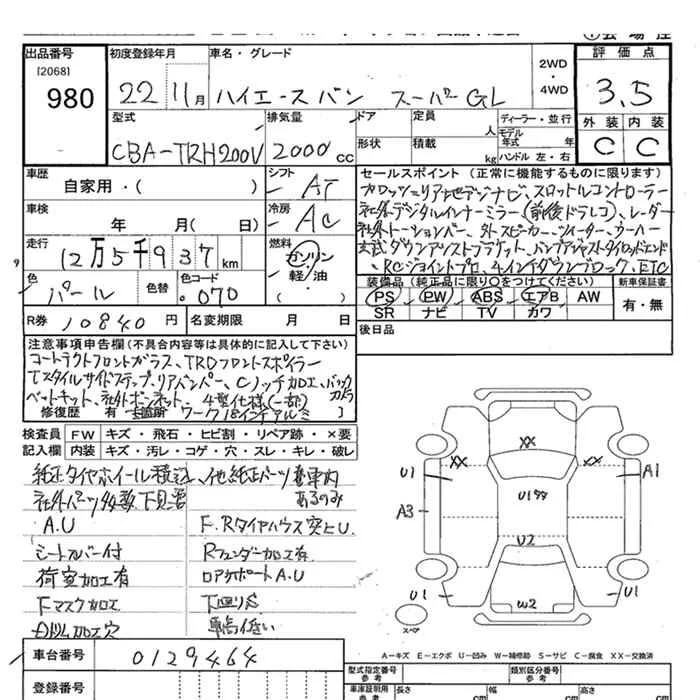 出品番号
[2068]
980
初度登録年月
22 11月
車名・グレード
ハイエースバン スーパーGL
2WD
・
4WD
評価点
3.5
外装 内装
C C
型式
CBA-TRH200V
排気量
2000 cc
ドア
形状
定員
人
積載
kg
ディーラー・並行
モデル
年式 年
ハンドル 左・右
車歴
自家用・( )
シフト
AT
車検
年 月( 日)
冷房
AC
走行
12万5千937km
燃料
ガソリン
軽油
( )
色
パール
色替
色コード
070
R券 10840円
名変期限 月 日
セールスポイント (正常に機能するものに限ります)
カロッツェリア地デジナビ、スロットルコントローラー
社外デジタルインナーミラー(前後ドラレコ)、レーダー
社外トーションバー、外スピーカー、ツィーター、ウーハー
玄武ダウンアシストブラケット、バンプアジャストタイロッドエンド
、RCジョイントプロ、4インチダウンブロック、ETC
装備品 (純正品に限り○をつけてください)
新車保証書
PS PW ABS エアB AW
SR ナビ TV カワ
有・無
後日品
注意事項申告欄(不具合内容等は具体的に記入して下さい)
コートテクトフロントガラス、TRDフロントスポイラー
Tスタイルサイドステップ、リアバンパー、Cノッチ加工、バックカメラ
ベットキット、社外ボンネット、4型仕様(一部)
修復歴 有 ワーク18インチアルミ ]
検査員 FW キズ・飛石・ヒビ割・リペア跡・×要
記入欄 内装 キズ・汚レ・コゲ・穴・スレ・キレ・破レ
純正タイヤホイール積込、他純正パーツ車内
あるのみ
社外パーツ多数下見要
A.U
シートカバー付
荷室加工有
Fマスク加工
内ドリム加工穴
F.Rタイヤハウス突上U.
Rフェンダー加工有
ロアサポートA.U
下廻りS
車高低い
XX
XX XX
U1 A1
A3
U1多
U2
U1 U1
W2
スペア
A-キズ E-エクボ U-凹み W-補修跡 S-サビ C-腐食 XX-交換済
車台番号 0129464
登録番号
型式指定番号
参考
類別区分番号
参考
車庫証明用
参考
長さ cm 幅 cm 高さ cm